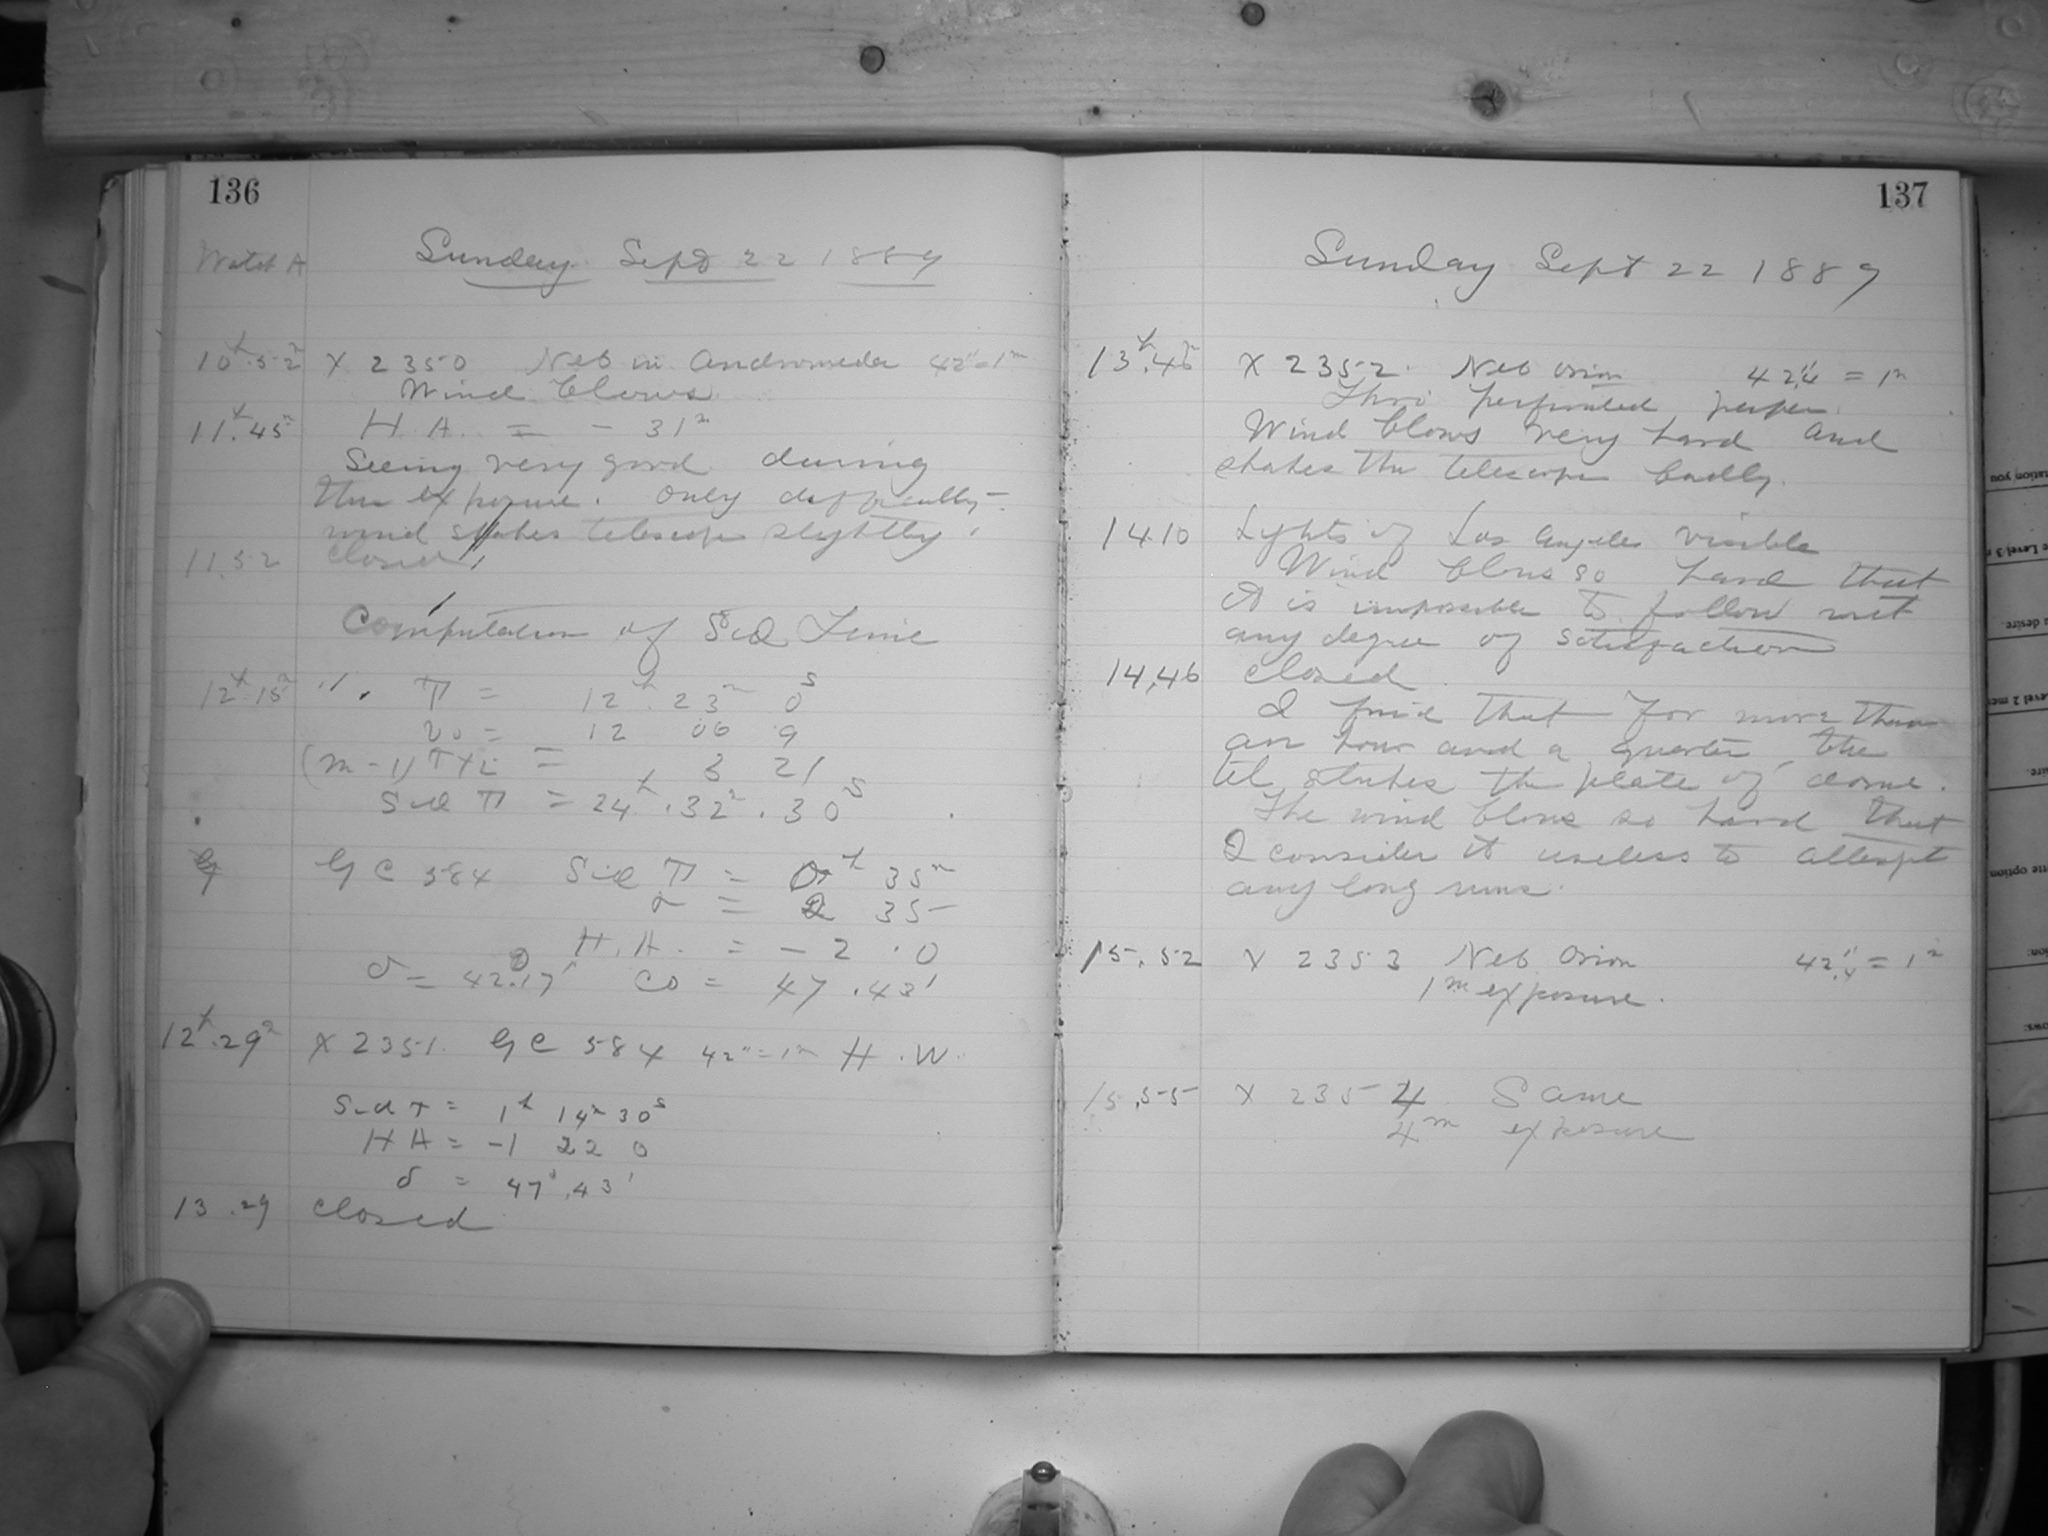 136
Watch A
Sunday Sept 22 1889
10h.52m X 2350 Neb in Andromeda 42"=1m
Wind blows
11h.45m H.A. = - 31m
Seeing very good during
the exposure. Only difficulty-
wind shakes telescope slightly.
11.52 closed
Computation of Sid Time
12h.15m T = 12h.23m 0s
v0 = 12 06 9
(m-1)T+L = 3 21
Sid T = 24h.32m.30s
G C 584 Sid T = 0h 35m
α = 2 35
H.A. = - 2 . 0
δ = 42°.17' co = 47.43'
12h.29m X 2351. G C 584 42"=1m H.W.
Sid T = 1h 14m 30s
H A = -1 22 0
δ = 47°.43'
13.29 closed
137
Sunday Sept 22 1889
13h.46m X 2352. Neb Orion 42.4" = 1m
Thro' perforated paper.
Wind blows very hard and
shakes the telescope badly.
14 10 Lights of Los Angeles visible
Wind blows so hard that
it is impossible to follow with
any degree of satisfaction
14.46 closed.
I find that for more than
an hour and a quarter, the
tel strikes the plate of dome.
The wind blows so hard that
I consider it useless to attempt
any long runs.
15.52 X 2353 Neb Orion 42.4" = 1m
1m exposure.
15.55 X 2354 Same
4m exposure